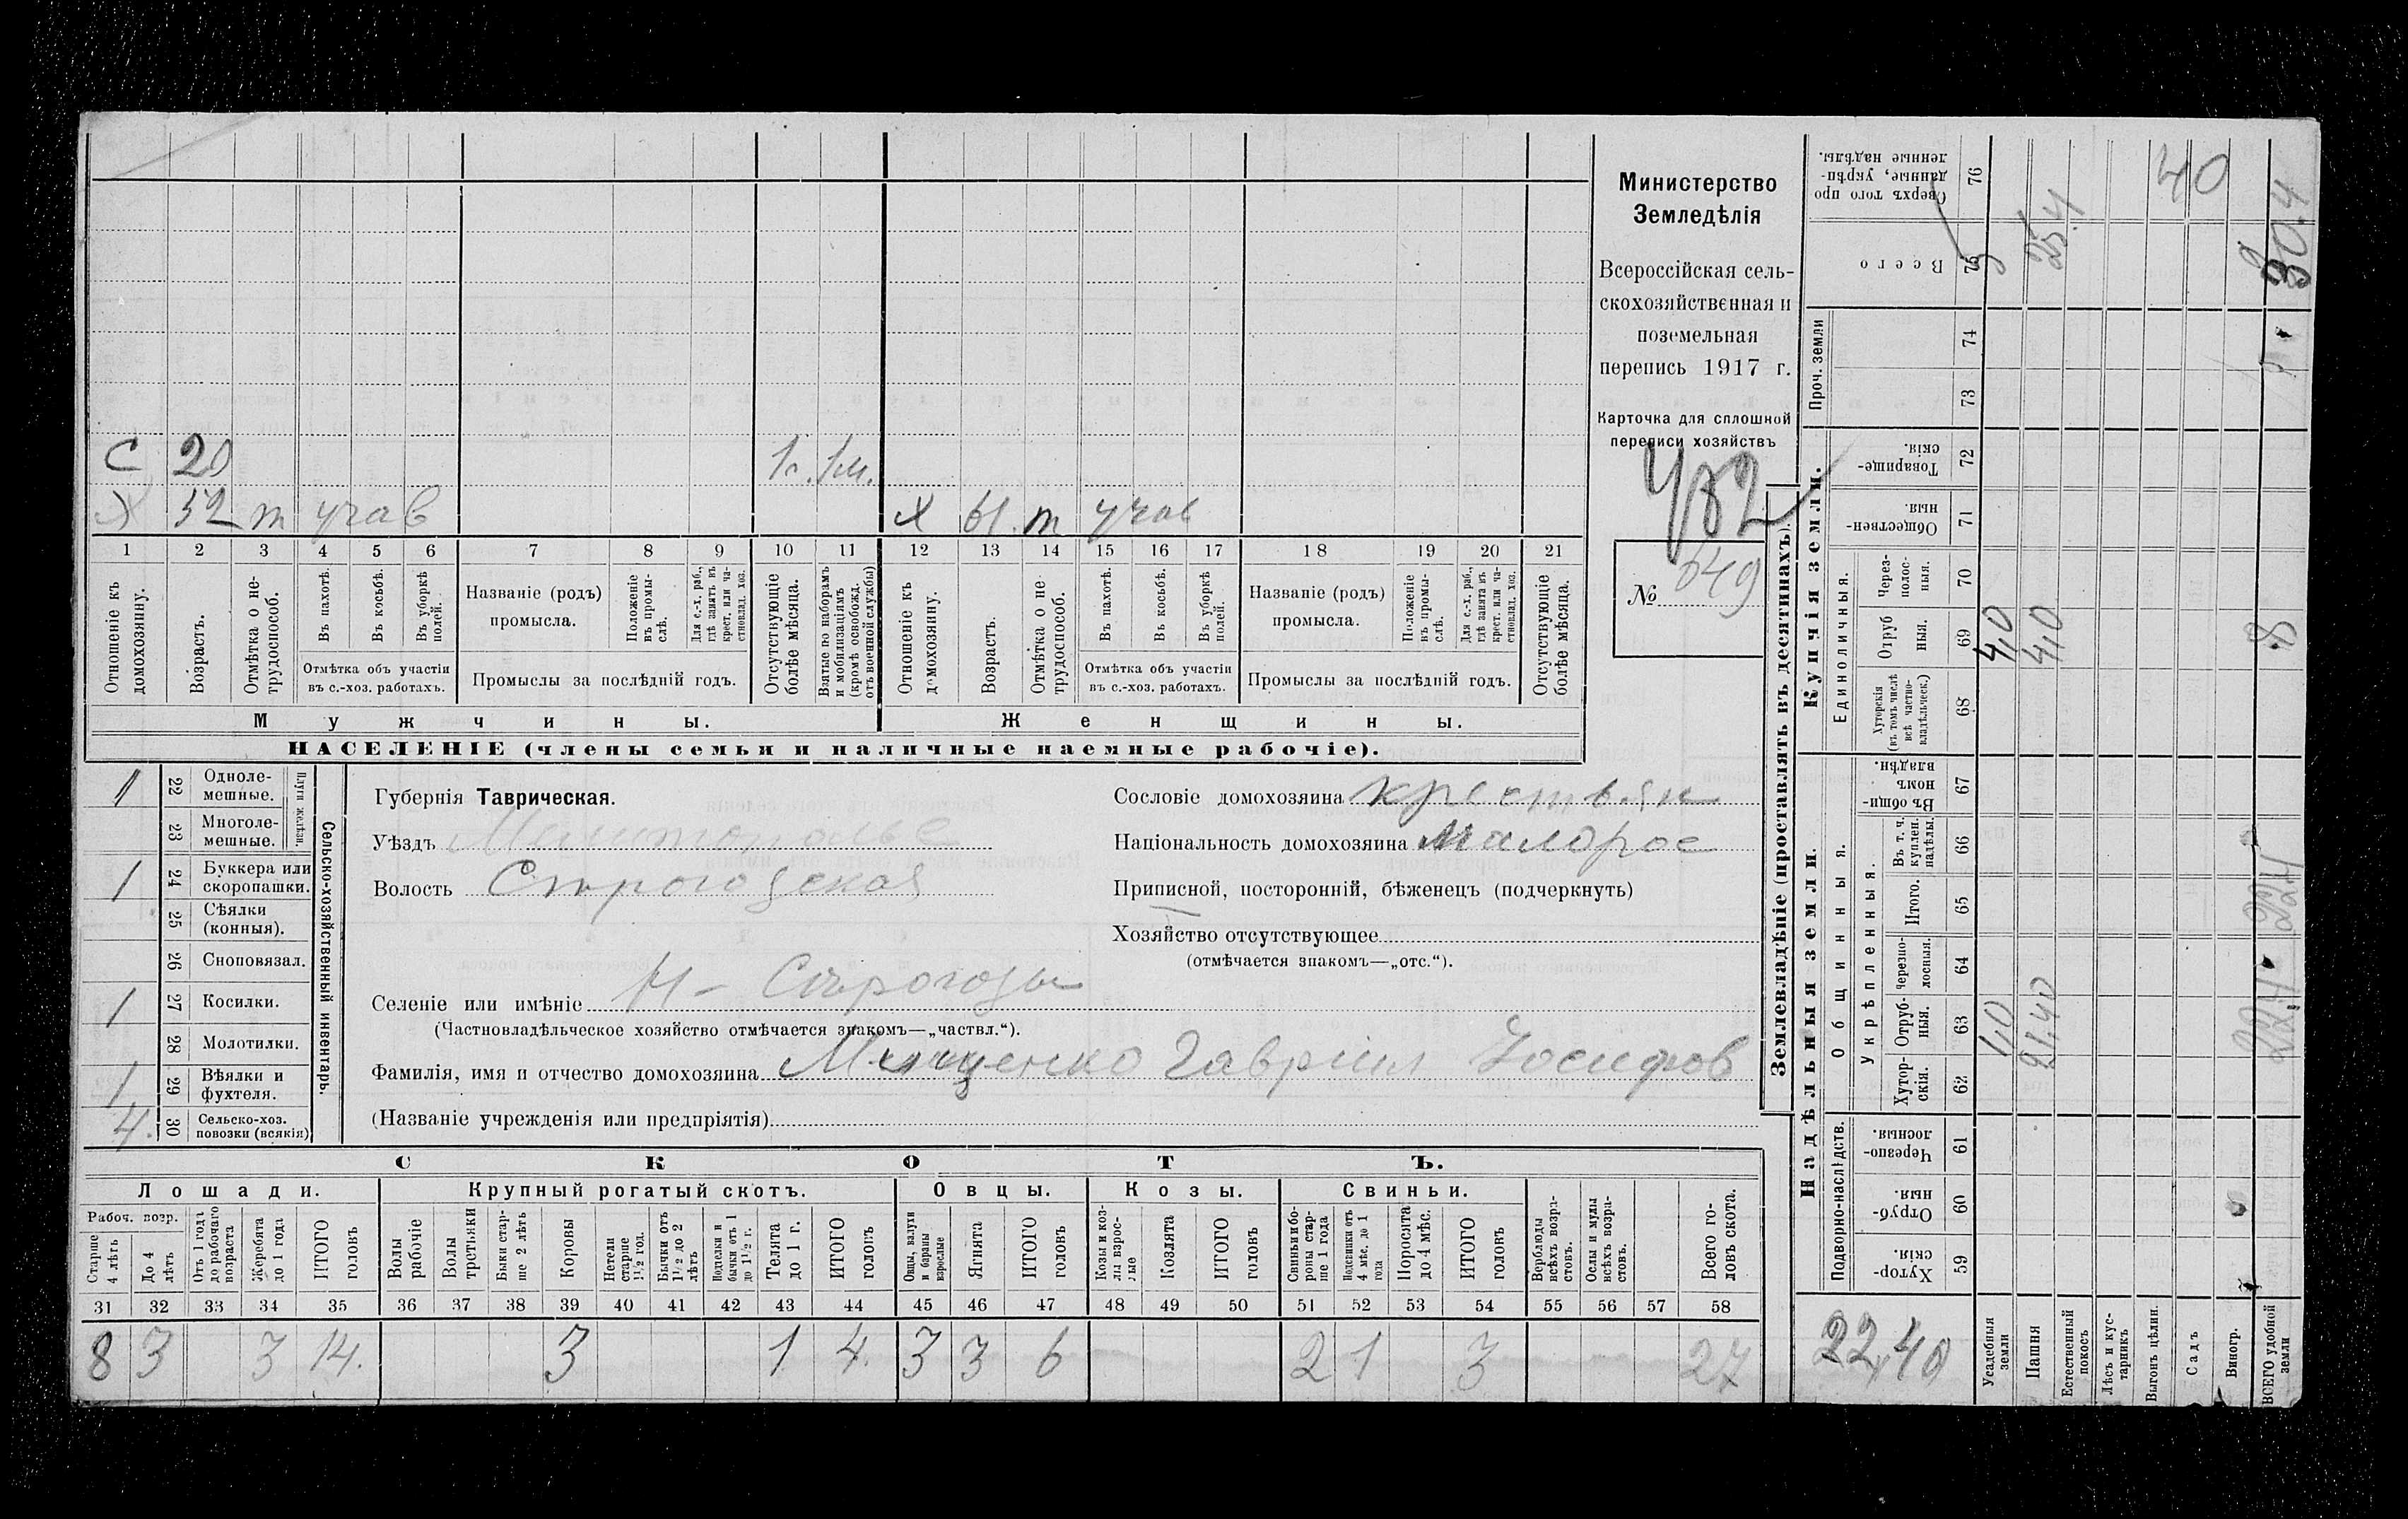 Министерство
Земледѣлія
Всероссійская сель-
скохозяйственная и
поземельная
перепись 1917 г.
Карточка для сплошной
переписи хозяйствъ
№ 649
С 20 1г. 1м.
Х 52 т учав Х 61. т учав
1 2 3 4 5 6 7 8 9 10 11 12 13 14 15 16 17 18 19 20 21
Отношеніе къ домохозяину.
Возрастъ.
Отмѣтка о не-трудоспособ.
Въ пахотѣ.
Въ косьбѣ.
Въ уборкѣ полей.
Отмѣтка объ участіи
въ с.-хоз. работахъ.
Названіе (родъ)
промысла.
Положеніе въ промы-слѣ.
Для с.-х. раб., гдѣ занятъ въ крест. или ча-стновлад. хоз.
Промыслы за послѣдній годъ.
Отсутствующіе болѣе мѣсяца.
Взятые по наборамъ и мобилизаціямъ (кромѣ освобожд. отъ военной службы)
Отношеніе къ домохозяину.
Возрастъ.
Отмѣтка о не-трудоспособ.
Въ пахотѣ.
Въ косьбѣ.
Въ уборкѣ полей.
Отмѣтка объ участіи
въ с.-хоз. работахъ.
Названіе (родъ)
промысла.
Положеніе въ промы-слѣ.
Для с.-х. раб., гдѣ занята въ крест. или ча-стновлад. хоз.
Промыслы за послѣдній годъ.
Отсутствующіе болѣе мѣсяца.
Мужчины. Женщины.
НАСЕЛЕНІЕ (члены семьи и наличные наемные рабочіе).
Сельско-хозяйственный инвентарь.
Плуги желѣзн.
1 22 Одноле-мешные.
23 Многоле-мешные.
1 24 Буккера или скоропашки.
25 Сѣялки (конныя).
26 Сноповязал.
1 27 Косилки.
28 Молотилки.
1 29 Вѣялки и фухтеля.
4. 30 Сельско-хоз. повозки (всякія)
Губернія Таврическая.
Уѣздъ
Волость
Селеніе или имѣніе Н- Сѣрогозы
(Частновладѣльческое хозяйство отмѣчается знакомъ—„частвл.“).
Фамилія, имя и отчество домохозяина Мищенко Гавріил Іосифов
(Названіе учрежденія или предпріятія)
Сословіе домохозяина крестьян
Національность домохозяина малорос
Приписной, посторонній, бѣженецъ (подчеркнуть)
Хозяйство отсутствующее
(отмѣчается знакомъ—„отс.“).
СКОТЪ.
Лошади. Крупный рогатый скотъ. Овцы. Козы. Свиньи.
Рабоч. возр.
Старше 4 лѣтъ
До 4 лѣтъ
Отъ 1 года до рабочаго возраста
Жеребята до 1 года
ИТОГО головъ
Волы рабочіе
Волы третьяки
Быки стар-ше 2 лѣтъ
Коровы
Нетели старше 1½ год.
Бычки отъ 1½ до 2 лѣтъ
Подтелки и бычки отъ 1 до 1½ г.
Телята до 1 г.
ИТОГО головъ
Овцы, валухи и бараны взрослые
Ягнята
ИТОГО головъ
Козы и коз-лы взрос-лые
Козлята
ИТОГО головъ
Свиньи и бо-ровы стар-ше 1 года
Подсвинки отъ 4 мѣс. до 1 года
Поросята до 4 мѣс.
ИТОГО головъ
Верблюды всѣхъ возра-стовъ.
Ослы и мулы всѣхъ возра-стовъ.
Всего го-ловъ скота.
31 32 33 34 35 36 37 38 39 40 41 42 43 44 45 46 47 48 49 50 51 52 53 54 55 56 57 58
8 3 3 14. 3 1 4. 3 3 6 2 1 3 27
Землевладѣніе (проставлять въ десятинахъ).
Купчія земли.
Надѣльныя земли.
Сверхъ того про-данные, укрѣп-ленные надѣлы. 76
Всего 75
Проч. земли 74 73
Товарище-скія. 72
Обществен-ныя. 71
Единоличныя.
Через-полос-ныя. 70
Отруб-ныя. 69
Хуторскія (въ томъ числѣ всѣ частно-владѣльческ.) 68
Въ общи-номъ владѣн. 67
Общинныя.
Укрѣпленныя.
Въ т. ч. куплен. надѣлы. 66
Итого. 65
Черезпо-лосныя. 64
Отруб-ныя. 63
Хутор-скія. 62
Подворно-наслѣдств.
Черезпо-лосныя. 61
Отруб-ныя. 60
Хутор-скія. 59
22,40
Усадебныя земли 1,0 4,0
Пашня 21.40 4,0 25.4
Естественный покосъ
Лѣсъ и кус-тарникъ
Выгонъ цѣлин.
Садъ
Виногр.
ВСЕГО удобной земли 8 30.4
40